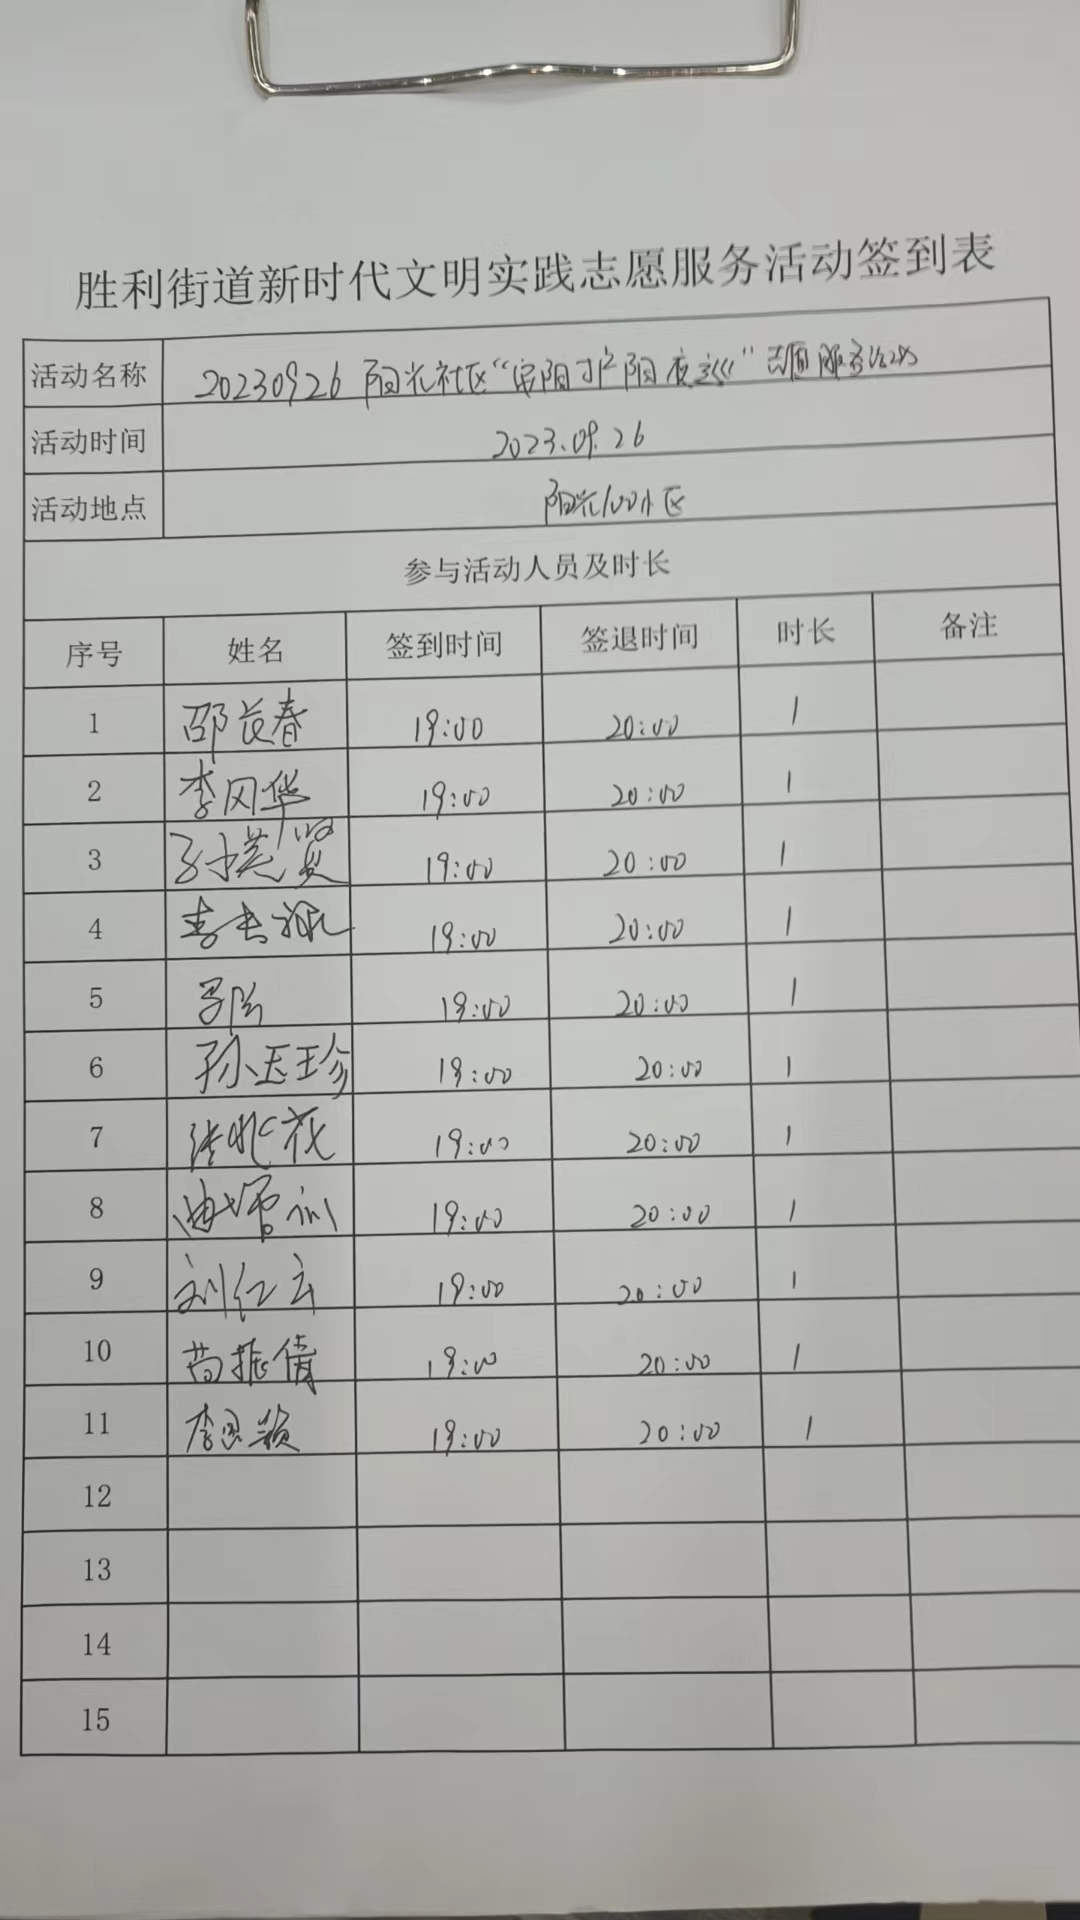 胜利街道新时代文明实践志愿服务活动签到表
活动名称 20230926 阳光社区“ 阳 护 阳 夜巡”志愿服务活动
活动时间 2023.09.26
活动地点 阳光100小区
参与活动人员及时长
序号 姓名 签到时间 签退时间 时长 备注
1 邵长春 19:00 20:00 1
2 李风华 19:00 20:00 1
3 孙 贤 19:00 20:00 1
4 李 19:00 20:00 1
5 19:00 20:00 1
6 孙玉珍 19:00 20:00 1
7 张兆花 19:00 20:00 1
8 曲 训 19:00 20:00 1
9 刘红云 19:00 20:00 1
10 苗振倩 19:00 20:00 1
11 李思颖 19:00 20:00 1
12
13
14
15